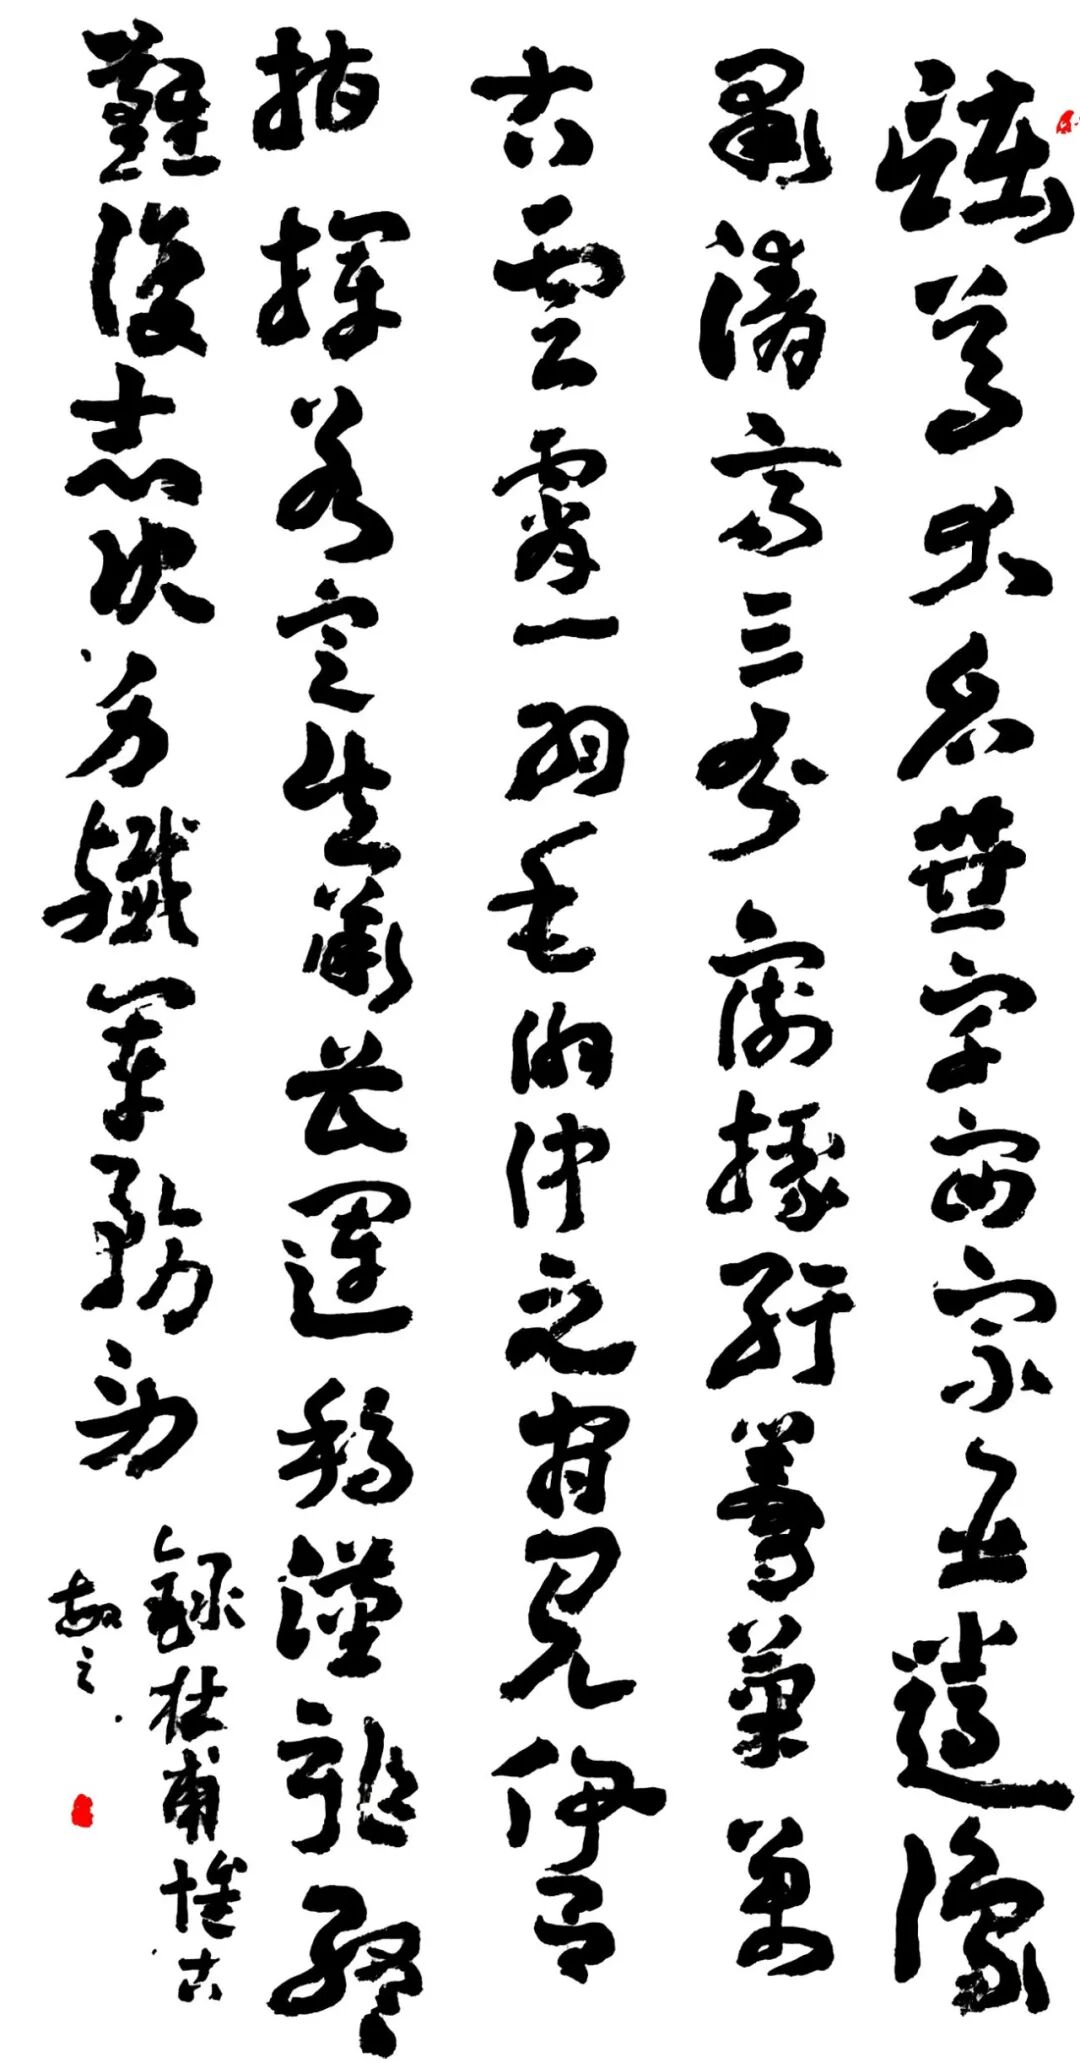 諸葛大名垂宇宙宗臣遺像
肅清高三分割據紆籌策萬
古雲霄一羽毛伯仲之間見伊呂
指揮若定失蕭曹運移漢祚終
難復志決身殲軍務勞
錄杜甫懷古